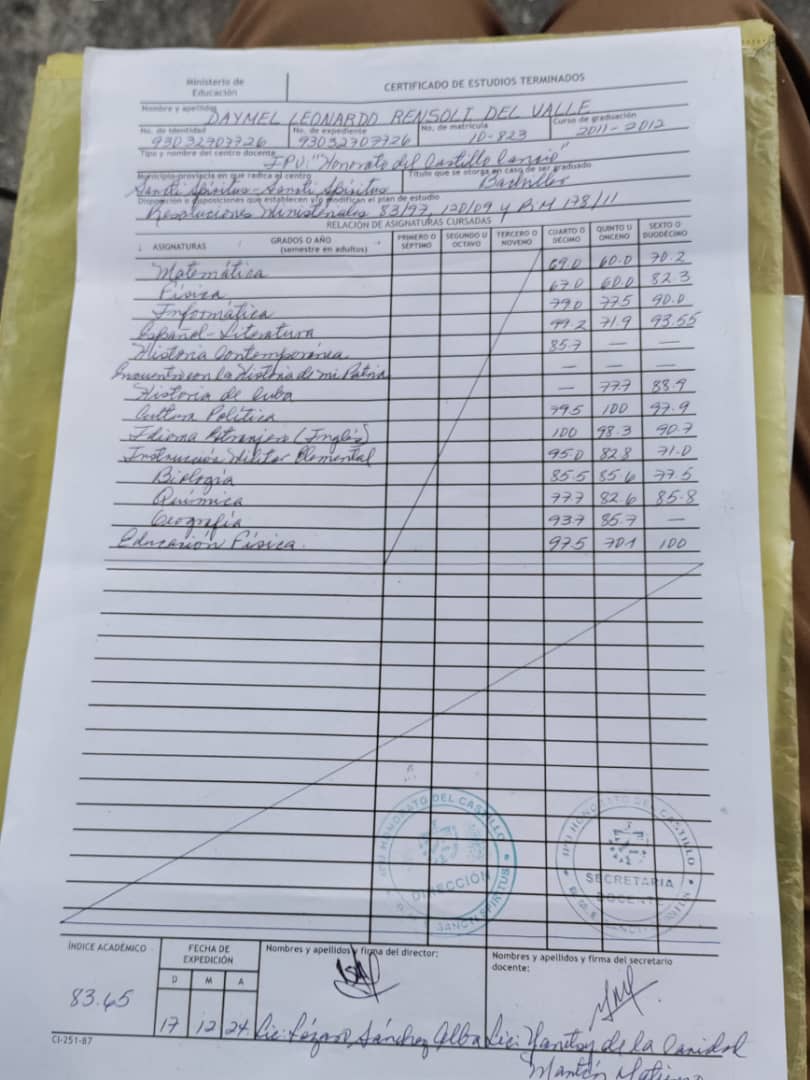 Ministerio de
Educación
CERTIFICADO DE ESTUDIOS TERMINADOS
Nombre y apellidos
DAYMEL LEONARDO RENSOLI DEL VALLE
No. de identidad No. de expediente No. de matrícula Curso de graduación
93032707726 93032707726 10-823 2011-2012
Tipo y nombre del centro docente
IPU: "Honorato del Castillo Cancio"
Municipio-provincia en que radica el centro Título que se otorga en caso de ser graduado
Sancti Spíritus-Sancti Spíritus Bachiller
Disposición o disposiciones que establecen y/o modifican el plan de estudio
Resoluciones Ministeriales 83/97, 120/09 y RM 178/11
RELACIÓN DE ASIGNATURAS CURSADAS
ASIGNATURAS GRADOS O AÑO (semestre en adultos) PRIMERO O SÉPTIMO SEGUNDO U OCTAVO TERCERO O NOVENO CUARTO O DÉCIMO QUINTO U ONCENO SEXTO O DUODÉCIMO
Matemática 69.0 60.0 70.2
Física 67.0 60.0 82.3
Informática 79.0 77.5 90.0
Español-Literatura 99.2 71.9 93.55
Historia Contemporánea 85.7 — —
Encuentro con la Historia de mi Patria — — —
Historia de Cuba — 77.7 88.9
Cultura Política 79.5 100 97.9
Idioma Extranjero (Inglés) 100 98.3 90.7
Instrucción Militar Elemental 95.0 82.8 71.0
Biología 85.5 85.6 77.5
Química 77.7 82.6 85.8
Geografía 93.7 85.7 —
Educación Física. 97.5 70.1 100
IPU HONORATO DEL CASTILLO
DIRECCIÓN
SANCTI SPIRITUS
IPU HONORATO DEL CASTILLO
SECRETARIA
DOCENTE
SANCTI SPIRITUS
ÍNDICE ACADÉMICO
83.65
FECHA DE EXPEDICIÓN
D M A
17 12 24
Nombres y apellidos y firma del director:
Lic. Lázaro Sánchez Alba
Nombres y apellidos y firma del secretario docente:
Lic. Yanitsy de la Caridad
CI-251-87